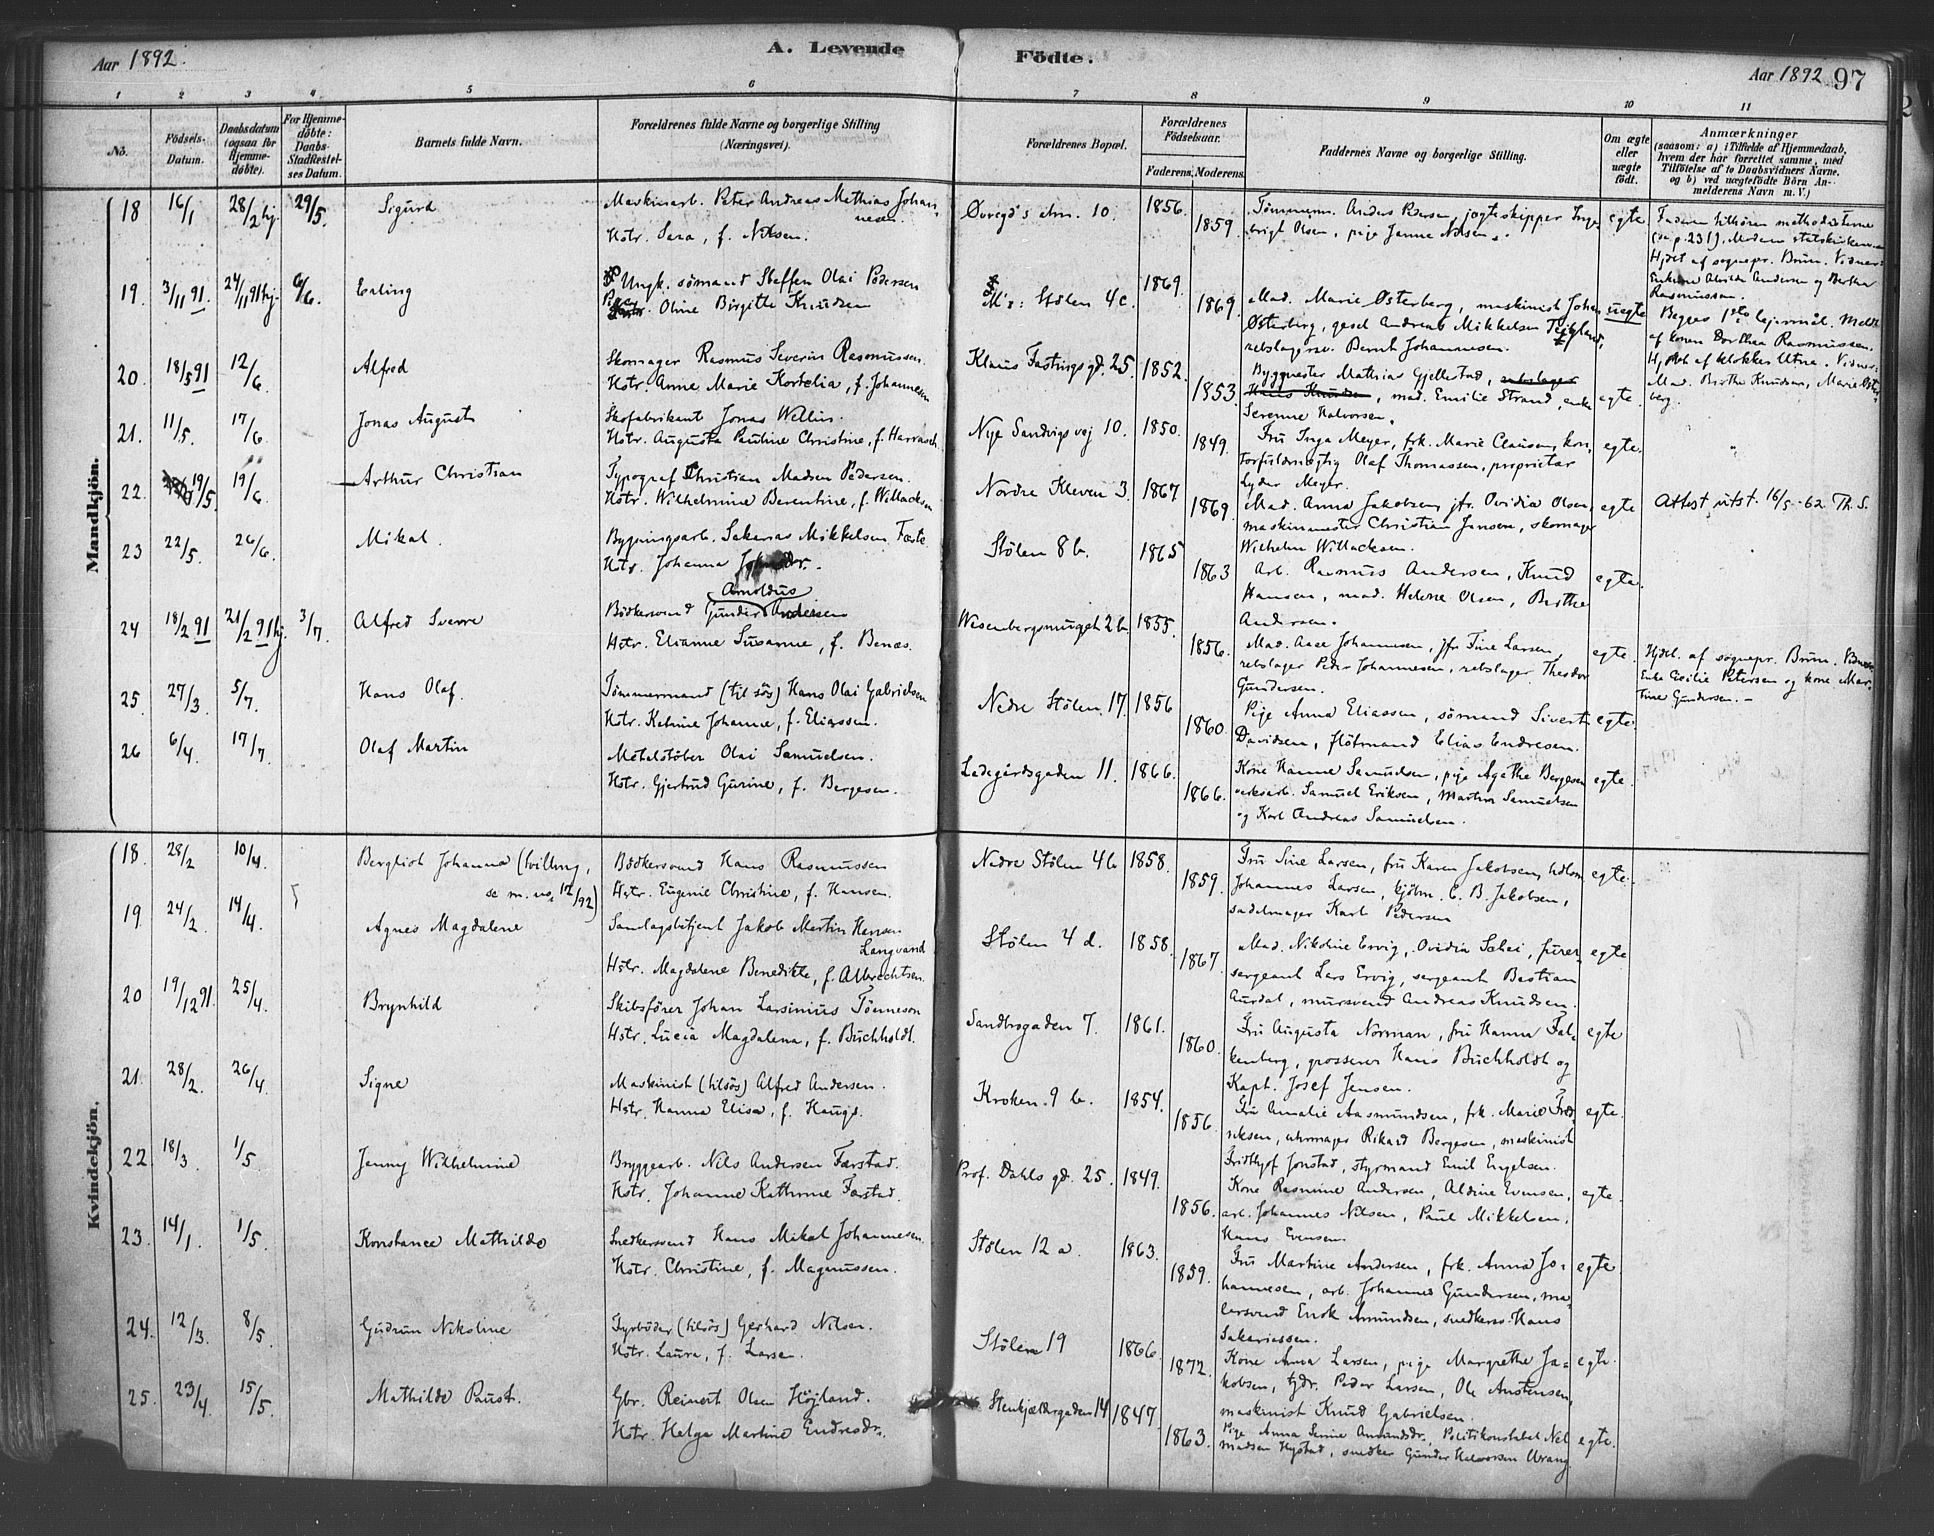 Aar 1892.
A. Levende
Födte.
Aar 1892
97
1 2 3 4 5 6 7 8 9 10 11
No.
Födsels-
Datum.
Daabsdatum
(ogsaa for
Hjemme-
döbte).
For Hjemme-
döbte:
Daabs-
Stadfæstel-
ses Datum.
Barnets fulde Navn.
Forældrenes fulde Navne og borgerlige Stilling
(Næringsvei).
Forældrenes Bopæl.
Forældrenes
Födselsaar.
Faderens. Moderens.
Faddernes Navne og borgerlige Stilling.
Om ægte
eller
uægte
födt.
Anmærkninger
(saasom: a) i Tilfælde af Hjemmedaab,
hvem der har forrettet samme, med
Tilföielse af to Daabsvidners Navne.
og b) ved uægtefödte Börn An-
melderens Navn m. V.)
Mandkjön.
18 16/1 28/2 hj. 29/5. Sigurd
Maskinarb. Peter Andreas Mathias Johan-
nesen.
Hstr. Sara, f. Nilsen.
10. 1856. 1859.
Tømmerm. Anders Pedersen, jogteskipper Inge-
brigt Olsen, pige Janna Nilsen.
egte.
Faderen tilhører methodisterne
(se p. 231), Moderen statskirken.
Hjdbt af sognepr. Brun. Vidner:
Enkerne Alvilda Andersen og Bertha
Rasmussen.
19. 3/11 91. 24/11 91 hj. 6/6. Erling
Ungk. sømand Steffen Olai Pedersen
Pige Oline Birgitte Knudsen
M's: Stølen 4c. 1869. 1869.
Mad. Marie Østerberg, maskinist Johan
Østerberg, gesel Andreas Mikkelsen
rebslagersv. Bernt Johannesen.
uegte
Begges 1ste lejermål. Meldt
af konen Dorthea Rasmussen.
Hjdbt af klokker Utne. Vidner:
Mad. Birthe Knudsen, Marie Øster-
berg.
20. 18/5 91 12/6. Alfred
Skomager Rasmus Severin Rasmussen.
Hstr. Anne Marie Kortelia, f. Johannesen
Klaus Fastings gd. 25. 1852. 1853.
Byggmester Mathias Gjellestad, rebslager
Hans Knudsen, mad. Emilie Strand, enke
Serenne Halvorsen.
egte.
21. 11/5. 17/6. Jonas August
Skofabrikant Jonas Wellin.
Hstr. Augusta Pauline Christine, f.
Nye Sandvigsvej 10. 1850. 1849.
Fru Inga Meyer, frk. Marie Clausen, kon-
torfuldmegtig Olaf Thomassen, proprietær
Lyder Meyer.
egte.
"
22. 19/5. 19/6. Arthur Christian
Typograf Christian Madsen Pedersen.
Hstr. Wilhelmine Berentine, f. Willacksen
Nordre Kleven 3. 1867 1869.
Mad. Anna Jakobsen, jfr. Ovidia Olsen,
maskinmester Christian Jansen, skomager
Wilhelm Willacksen.
egte
Attest utst. 16/5-62 Th. S.
23 22/5. 26/6. Mikal.
Bygningsarb. Sakarias Mikkelsen Førte.
Hstr. Johanna
Stølen 8b. 1865 1863
Arb. Rasmus Andersen, Knud
Hansen, mad. Helene Olsen, Berthe
Andersen.
egte.
24 18/2 91 21/2 91 hj. 3/7. Alfred Sverre
Arnoldus
Bødkersvend Gunder Andersen
Hstr. Elianne Susanne, f. Benæs.
Wesenbergsmuget 2b. 1855. 1856.
Mad. Aase Johannesen, jfr. Tine Larsen,
rebslager Peder Johannesen, rebslager Theodor
Gundersen.
egte.
Hjdbt. af sognepr. Brun. Vidner:
Enke Cecilie Petersen og kone Mar-
tine Gundersen. -
25. 27/3. 5/7. Hans Olaf.
Tømmermand (til søs) Hans Olai Gabrielsen
Hstr. Katrine Johanne, f. Eliassen.
Nedre Stølen. 17. 1856 1860.
Pige Anna Eliassen, sømand Sivert
Davidsen, fløtmand Elias Endresen.
egte.
26 6/4. 17/7. Olaf Martin
Metalstøber Olai Samuelsen.
Hstr. Gjertrud Gurine, f. Bergesen.
Ladegårdsgaden 11. 1866. 1866.
Kone Hanne Samuelsen, pige Agathe Bergesen
verksarb. Samuel Eriksen, Martin Samuelsen
og Karl Andreas Samuelsen.
egte.
Kvindekjön.
18. 28/2 10/4. Bergliot Johanna (tvilling,
se m. no. 12/92)
Bødkersvend Hans Rasmussen
Hstr. Eugenie Christine, f. Hansen.
Nedre Stølen 4b 1858. 1859.
Fru Sine Larsen, fru Karen Jakobsen,
Johannes Larsen, kjøbm. C. B. Jakobsen,
sadelmager Karl Pedersen
egte.
19. 24/2. 14/4. Agnes Magdalene
Samlagsbetjent Jakob Martin Hansen
Langvand
Hstr. Magdalene Benedikte, f. Albrechtsen.
Stølen 4 d. 1858. 1867.
Mad. Nikoline Ervig, Ovidia furer-
sergeant Lars Ervig, sergeant Bastian
Aurdal, mursvend Andreas Knudsen.
egte
20 19/12 91. 25/4. Brynhild
Skibsfører Johan Larsinius Tønneson
Hstr. Lucia Magdalena, f. Buchholdt.
Sandbrogaden 7. 1861. 1860.
Fru Augusta Norman, fru Hanna Fal-
kenberg, grosserer Hans Buchholdt og
Kapt. Josef Jensen.
egte
21. 28/2. 26/4. Signe
Maskinist (tilsøs) Alfred Andersen.
Hstr. Hanna Elisa, f. Haugs.
Kroken. 9 b. 1854. 1856.
Fru Amalie Aasmundsen, frk. Marie Fred-
riksen, uhrmager Rikard Bergesen, maskinist
Fridthjof Jonstad, styrmand Emil Engelsen.
egte.
22. 18/3. 1/5. Jenny Wilhelmine
Bryggearb. Nils Andersen Farstad.
Hstr. Johanne Kathrine Farstad.
Prof. Dahls gd. 25. 1849. 1856.
Kone Rasmine Andersen, Aldine Evensen,
arb. Johannes Nilsen, Paul Mikkelsen,
Hans Evensen.
egte.
23. 14/1. 1/5. Konstance Mathilde
Snedkersvend Hans Mikal Johannesen.
Hstr. Christine, f. Magnussen.
Stølen 12 a. 1863. 1859.
Fru Martine Andersen, frk. Anna Jo-
hannesen, arb. Johannes Gundersen, ma-
lersvend Enok Amundsen, snedkersv. Hans
Sakariassen.
egte.
24. 12/3. 8/5. Gudrun Nikoline
Fyrbøder (tilsøs) Gerhard Nilsen.
Hstr. Laura, f. Larsen.
Stølen 19 1866. 1872.
Kone Anna Larsen, pige Margrethe Ja-
kobsen, Peder Larsen, Ole Austensen,
maskinist Knud Gabrielsen.
egte.
25. 23/4. 15/5. Mathilde Paust.
Gbr. Reinert Olsen Højland.
Hstr. Helga Martine Endresdr.
Stenkjældergaden 14 1847. 1863.
Pige Anna Serine Amundsdr., Politikonstabel Nel
Madsen Hystad, snedker Gunder Halvorsen Urang.
egte.